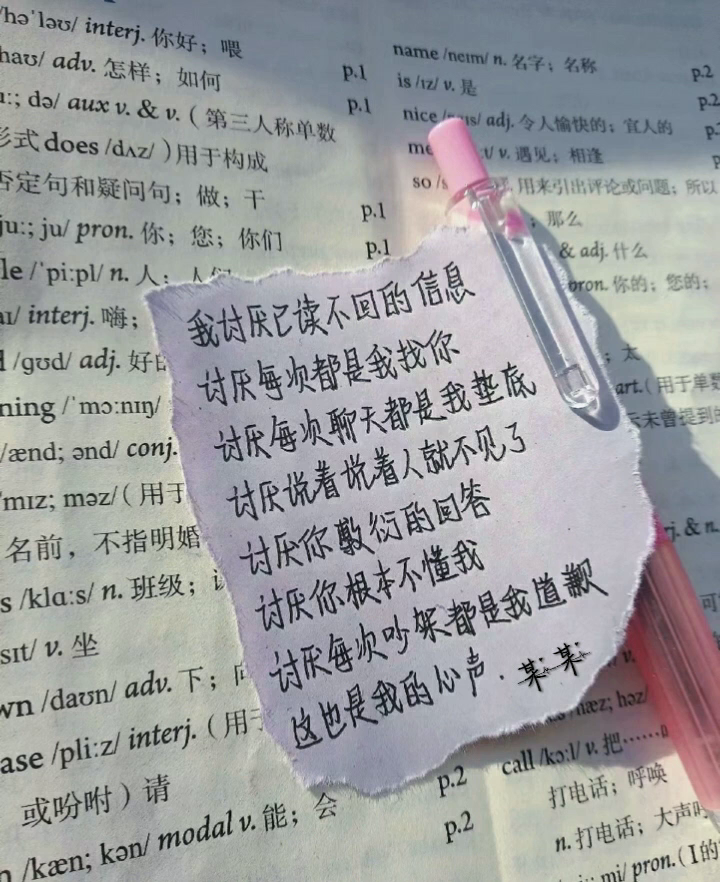 /həˈləʊ/ interj. 你好；喂
/haʊ/ adv. 怎样；如何 p.1
də/ aux v. & v.（第三人称单数 p.1
形式 does /dʌz/）用于构成
否定句和疑问句；做；干
juː; ju/ pron. 你；您；你们 p.1
/ˈpiːpl/ n. 人； p.1
interj. 嗨；
/ɡʊd/ adj.
/ˈmɔːnɪŋ/
/ænd; ənd/ conj.
mɪz; məz/（用于
名前，不指明婚
/klɑːs/ n. 班级；
sɪt/ v. 坐
/daʊn/ adv. 下；
/pliːz/ interj.（用于
或吩咐）请 p.2
/kæn; kən/ modal v. 能；会 p.2
name /neɪm/ n. 名字；名称 p.2
is /ɪz/ v. 是 p.2
nice adj. 令人愉快的；宜人的
v. 遇见；相逢
so 用来引出评论或问题；所以
；那么
& adj. 什么
pron. 你的；您的；
；太
art.（用于单数
未曾提到的
我讨厌已读不回的信息
讨厌每次都是我找你
讨厌每次聊天都是我垫底
讨厌说着说着人就不见了
讨厌你敷衍的回答
讨厌你根本不懂我
讨厌每次吵架都是我道歉
这也是我的心声. 某某
& n.
hæz; həz/
call /kɔːl/ v. 把……
打电话；呼唤
n. 打电话；大声
mi/ pron.（I 的